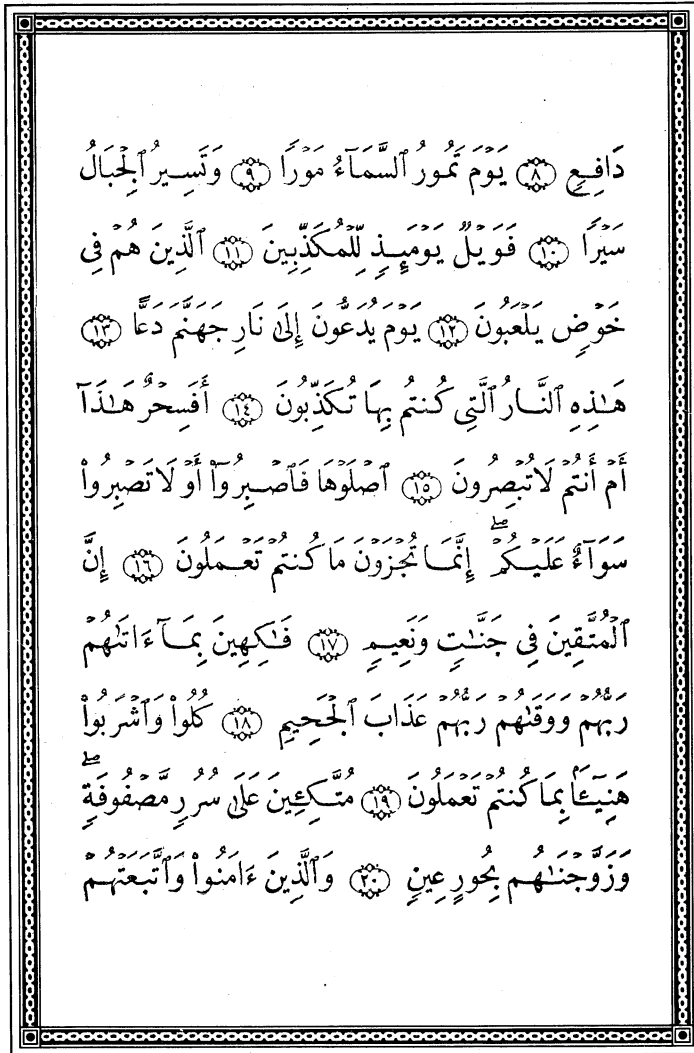 دَافِعٍ ﴿٨﴾ يَوْمَ تَمُورُ ٱلسَّمَآءُ مَوْرًا ﴿٩﴾ وَتَسِيرُ ٱلْجِبَالُ
سَيْرًا ﴿١٠﴾ فَوَيْلٌ يَوْمَئِذٍ لِّلْمُكَذِّبِينَ ﴿١١﴾ ٱلَّذِينَ هُمْ فِى
خَوْضٍ يَلْعَبُونَ ﴿١٢﴾ يَوْمَ يُدَعُّونَ إِلَىٰ نَارِ جَهَنَّمَ دَعًّا ﴿١٣﴾
هَٰذِهِ ٱلنَّارُ ٱلَّتِى كُنتُم بِهَا تُكَذِّبُونَ ﴿١٤﴾ أَفَسِحْرٌ هَٰذَآ
أَمْ أَنتُمْ لَا تُبْصِرُونَ ﴿١٥﴾ ٱصْلَوْهَا فَٱصْبِرُوٓا۟ أَوْ لَا تَصْبِرُوا۟
سَوَآءٌ عَلَيْكُمْ ۖ إِنَّمَا تُجْزَوْنَ مَا كُنتُمْ تَعْمَلُونَ ﴿١٦﴾ إِنَّ
ٱلْمُتَّقِينَ فِى جَنَّٰتٍ وَنَعِيمٍ ﴿١٧﴾ فَٰكِهِينَ بِمَآ ءَاتَىٰهُمْ
رَبُّهُمْ وَوَقَىٰهُمْ رَبُّهُمْ عَذَابَ ٱلْجَحِيمِ ﴿١٨﴾ كُلُوا۟ وَٱشْرَبُوا۟
هَنِيٓـًٔۢا بِمَا كُنتُمْ تَعْمَلُونَ ﴿١٩﴾ مُتَّكِـِٔينَ عَلَىٰ سُرُرٍ مَّصْفُوفَةٍ ۖ
وَزَوَّجْنَٰهُم بِحُورٍ عِينٍ ﴿٢٠﴾ وَٱلَّذِينَ ءَامَنُوا۟ وَٱتَّبَعَتْهُمْ